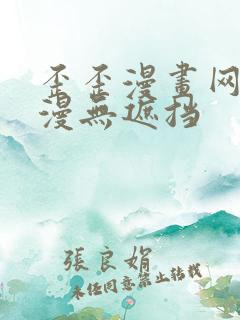 歪歪漫畫网
漫無遮挡
張良娟
未任同意禁止转载